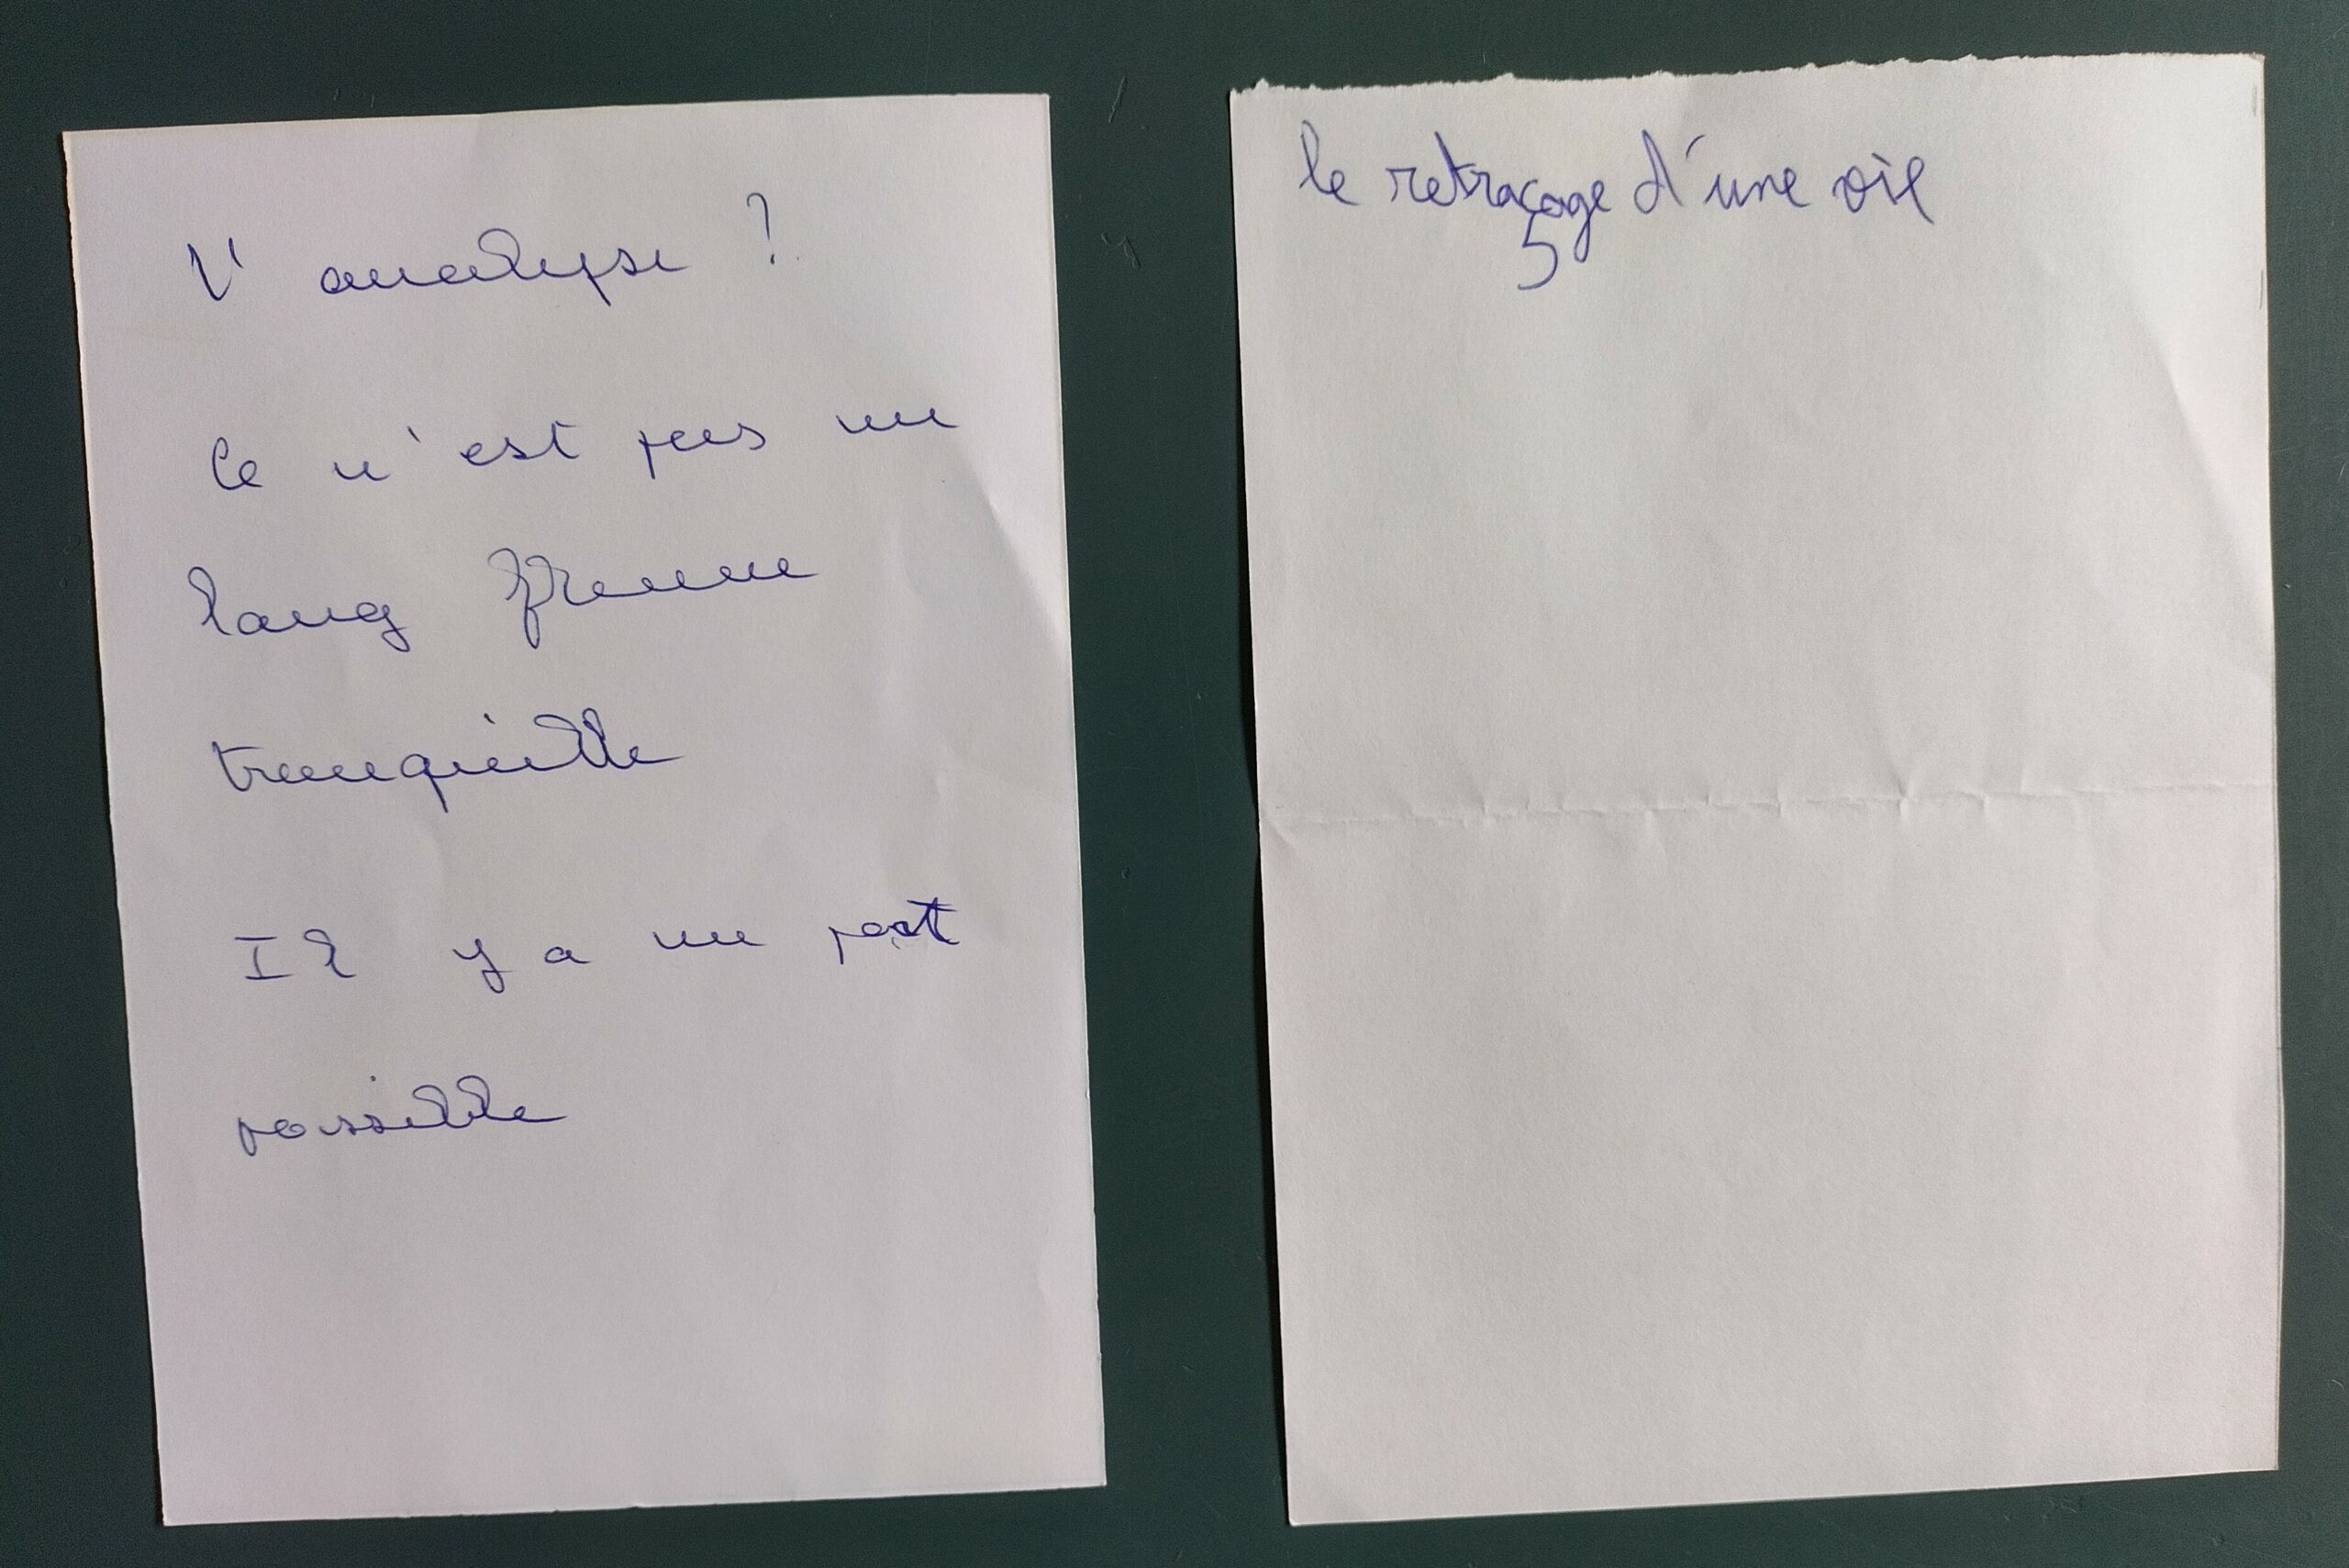 L' analyse ?
Ce n'est pas un
long fleuve
tranquille
Il y a un port
possible
le retraçage d'une vie